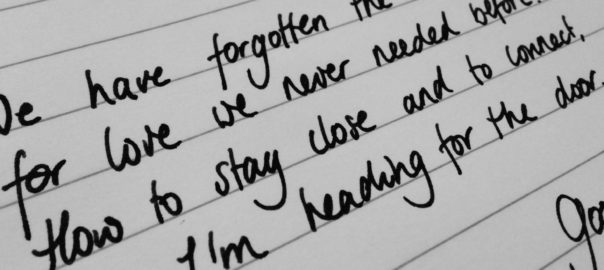 We have forgotten the
for love we never needed before.
How to stay close and to connect.
I'm heading for the door.